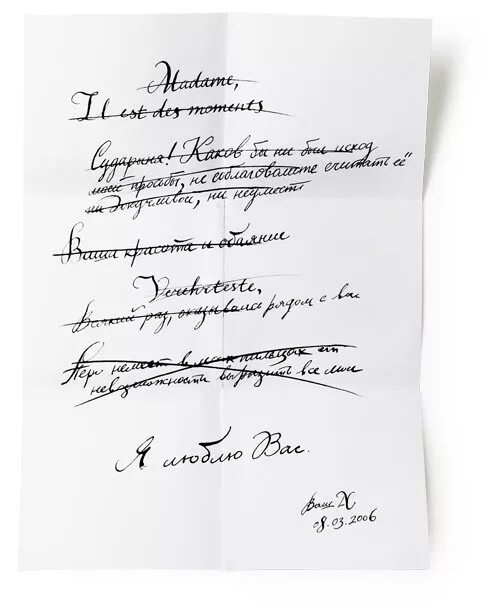 Madame,
Il est des moments
Сударыня! Каков бы ни был исход
моей просьбы, не соблаговолите считать её
ни докучливой, ни неуместн
Ваша красота и обаяние
Verehrteste,
Всякий раз, оказываясь рядом с вам
Перо немеет в моих пальцах от
невозможности выразить все мои
Я люблю Вас.
Ваш N
08.03.2006